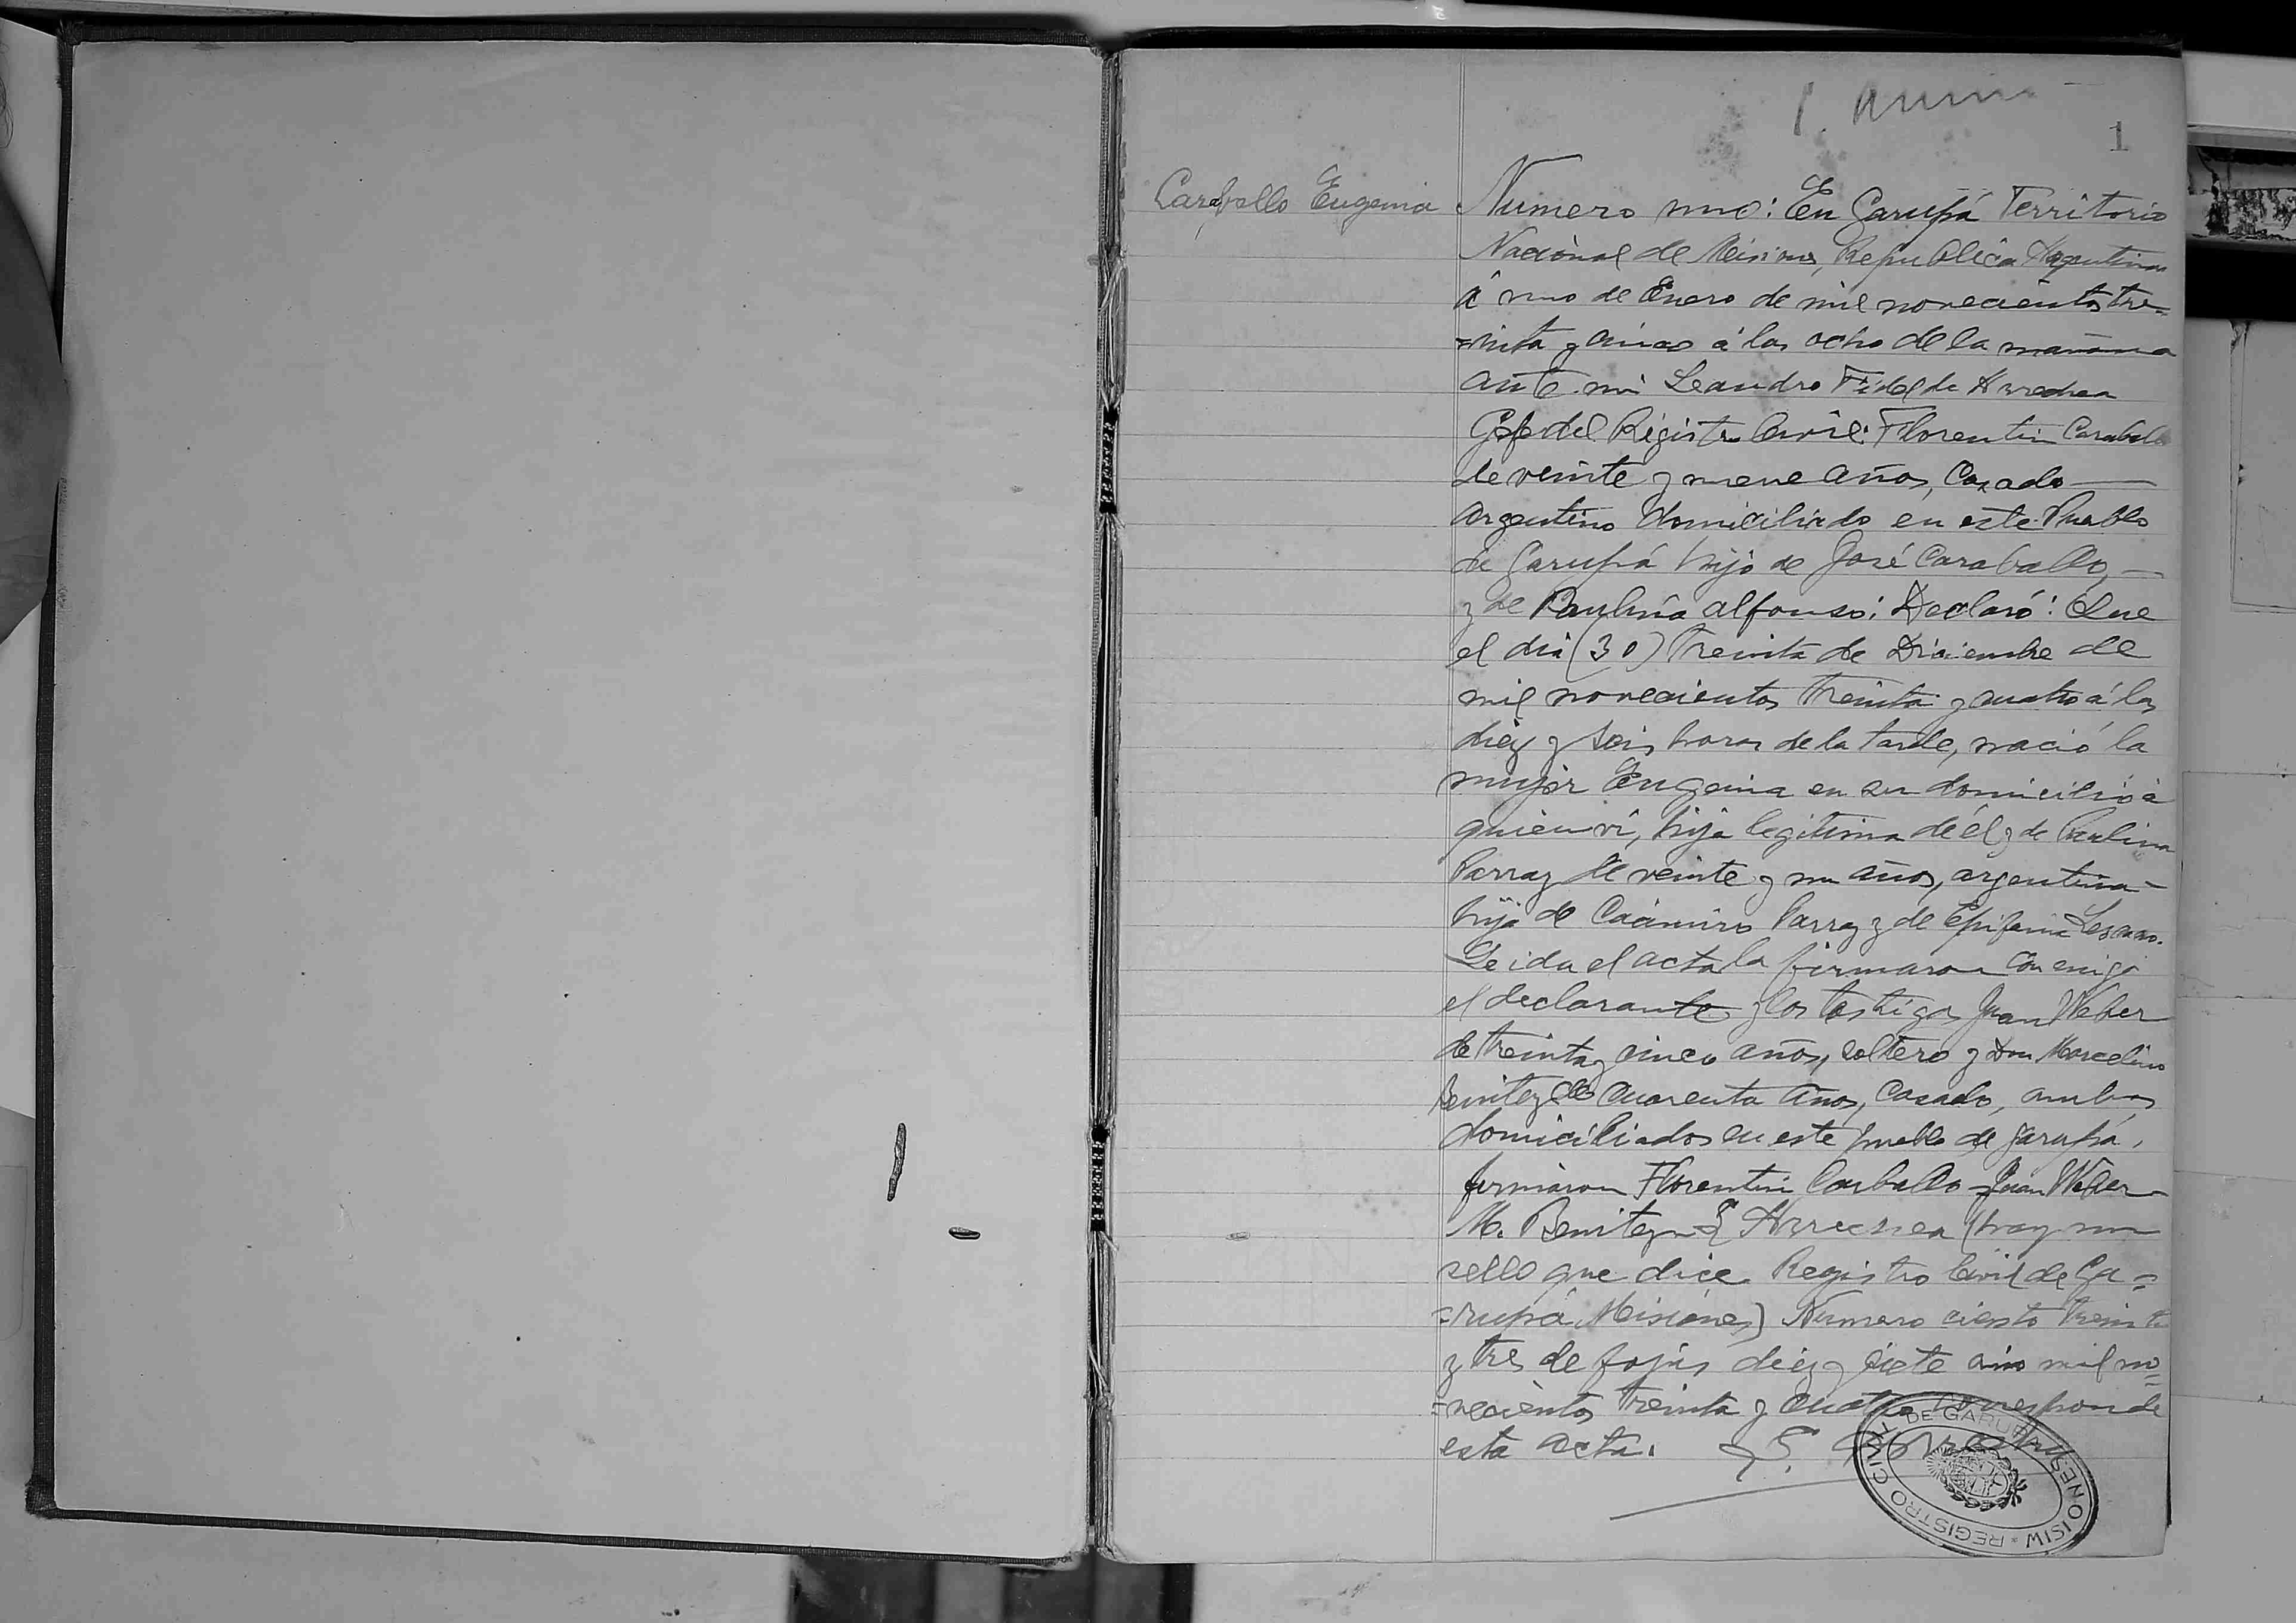 1
Caraballo Eugenia
Numero uno: En Garupá Territorio
Nacional de Misiones, Republica Argentina
á uno de Enero de mil novecientos tre=
=inta y cinco á las ocho de la mañana
ante mi Leandro Fidel de Arrechea
Gefe del Registro Civil: Florentin Caraballo
de veinte y nueve años, Casado
argentino domiciliado en este Pueblo
de Garupá hijo de José Caraballo,
y de Paulina Alfonso: Declaró: Que
el dia (30) treinta de Diciembre de
mil novecientos treinta y cuatro á las
diez y seis horas de la tarde, nació la
mujer Eugenia en su domicilio á
quien ví, hija legitima de él y de Paulina
Parras de veinte y un años, argentina
hija de Casimiro Parras y de Epifania
Leida el acta la firmaron conmigo
el declarante y los testigos Juan Weber
de treinta y cinco años, soltero y Don Marcelino
Benitez de cuarenta años, casado, ambos
domiciliados en este pueblo de Garupá.
firmaron Florentin Carballo - Juan Weber -
M. Benitez - Arrechea (hay un
sello que dice Registro Civil de Ga=
=rupá Misiones) Numero ciento treinta
y tres de fojas diez y siete año mil no=
=vecientos treinta y cuatro corresponde
esta acta.
REGISTRO CIVIL DE GARUPA MISIONES